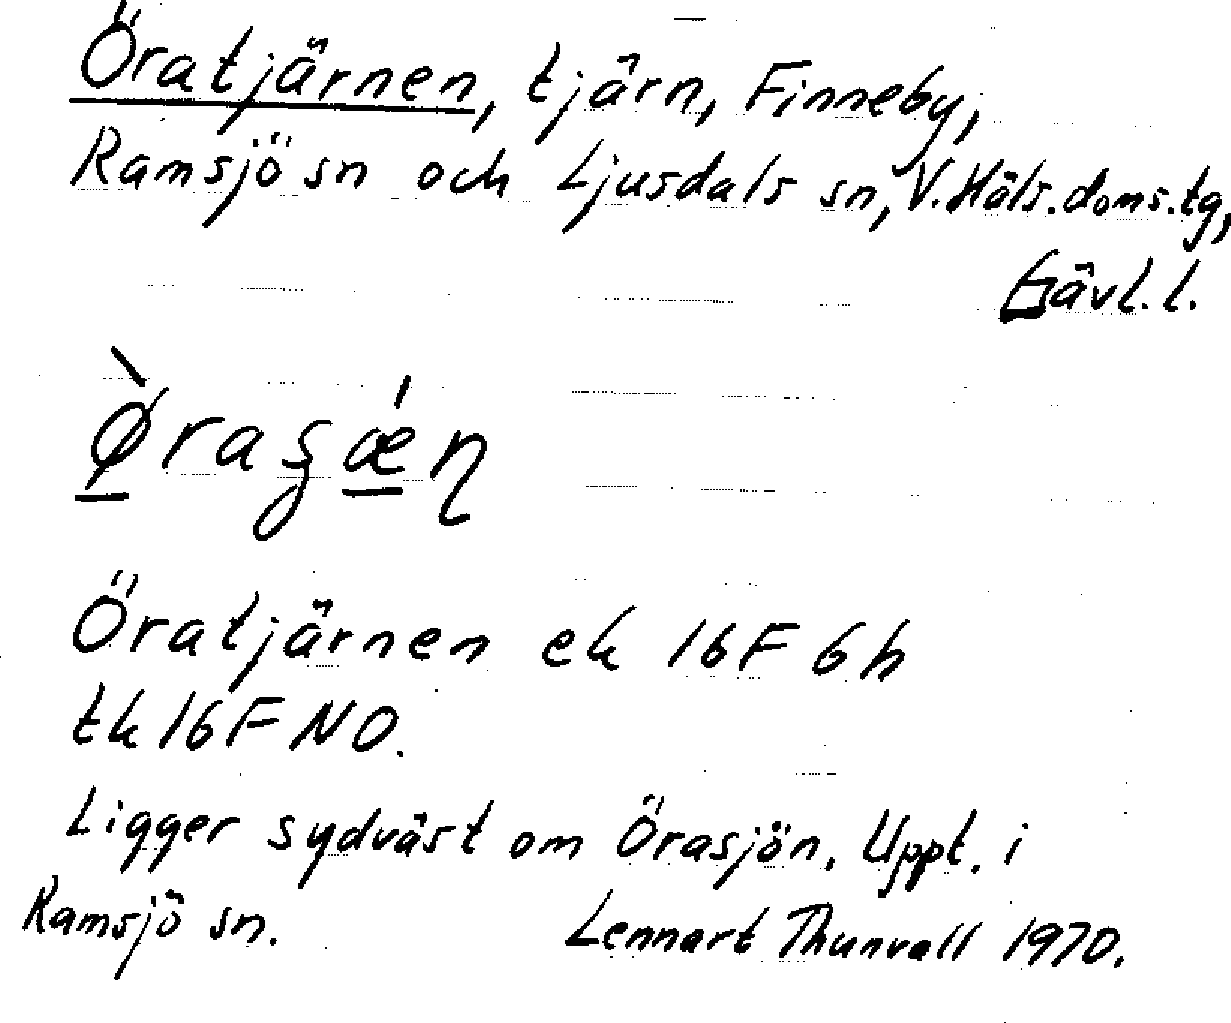 Öratjärnen, tjärn, Finneby,
Ramsjö sn och Ljusdals sn, V. Häls. doms. tg,
Gävl. l.
Öratjärnen ek 16F 6h
tk 16F NO.
Ligger sydväst om Örasjön. Uppt. i
Ramsjö sn.
Lennart Thunvall 1970.